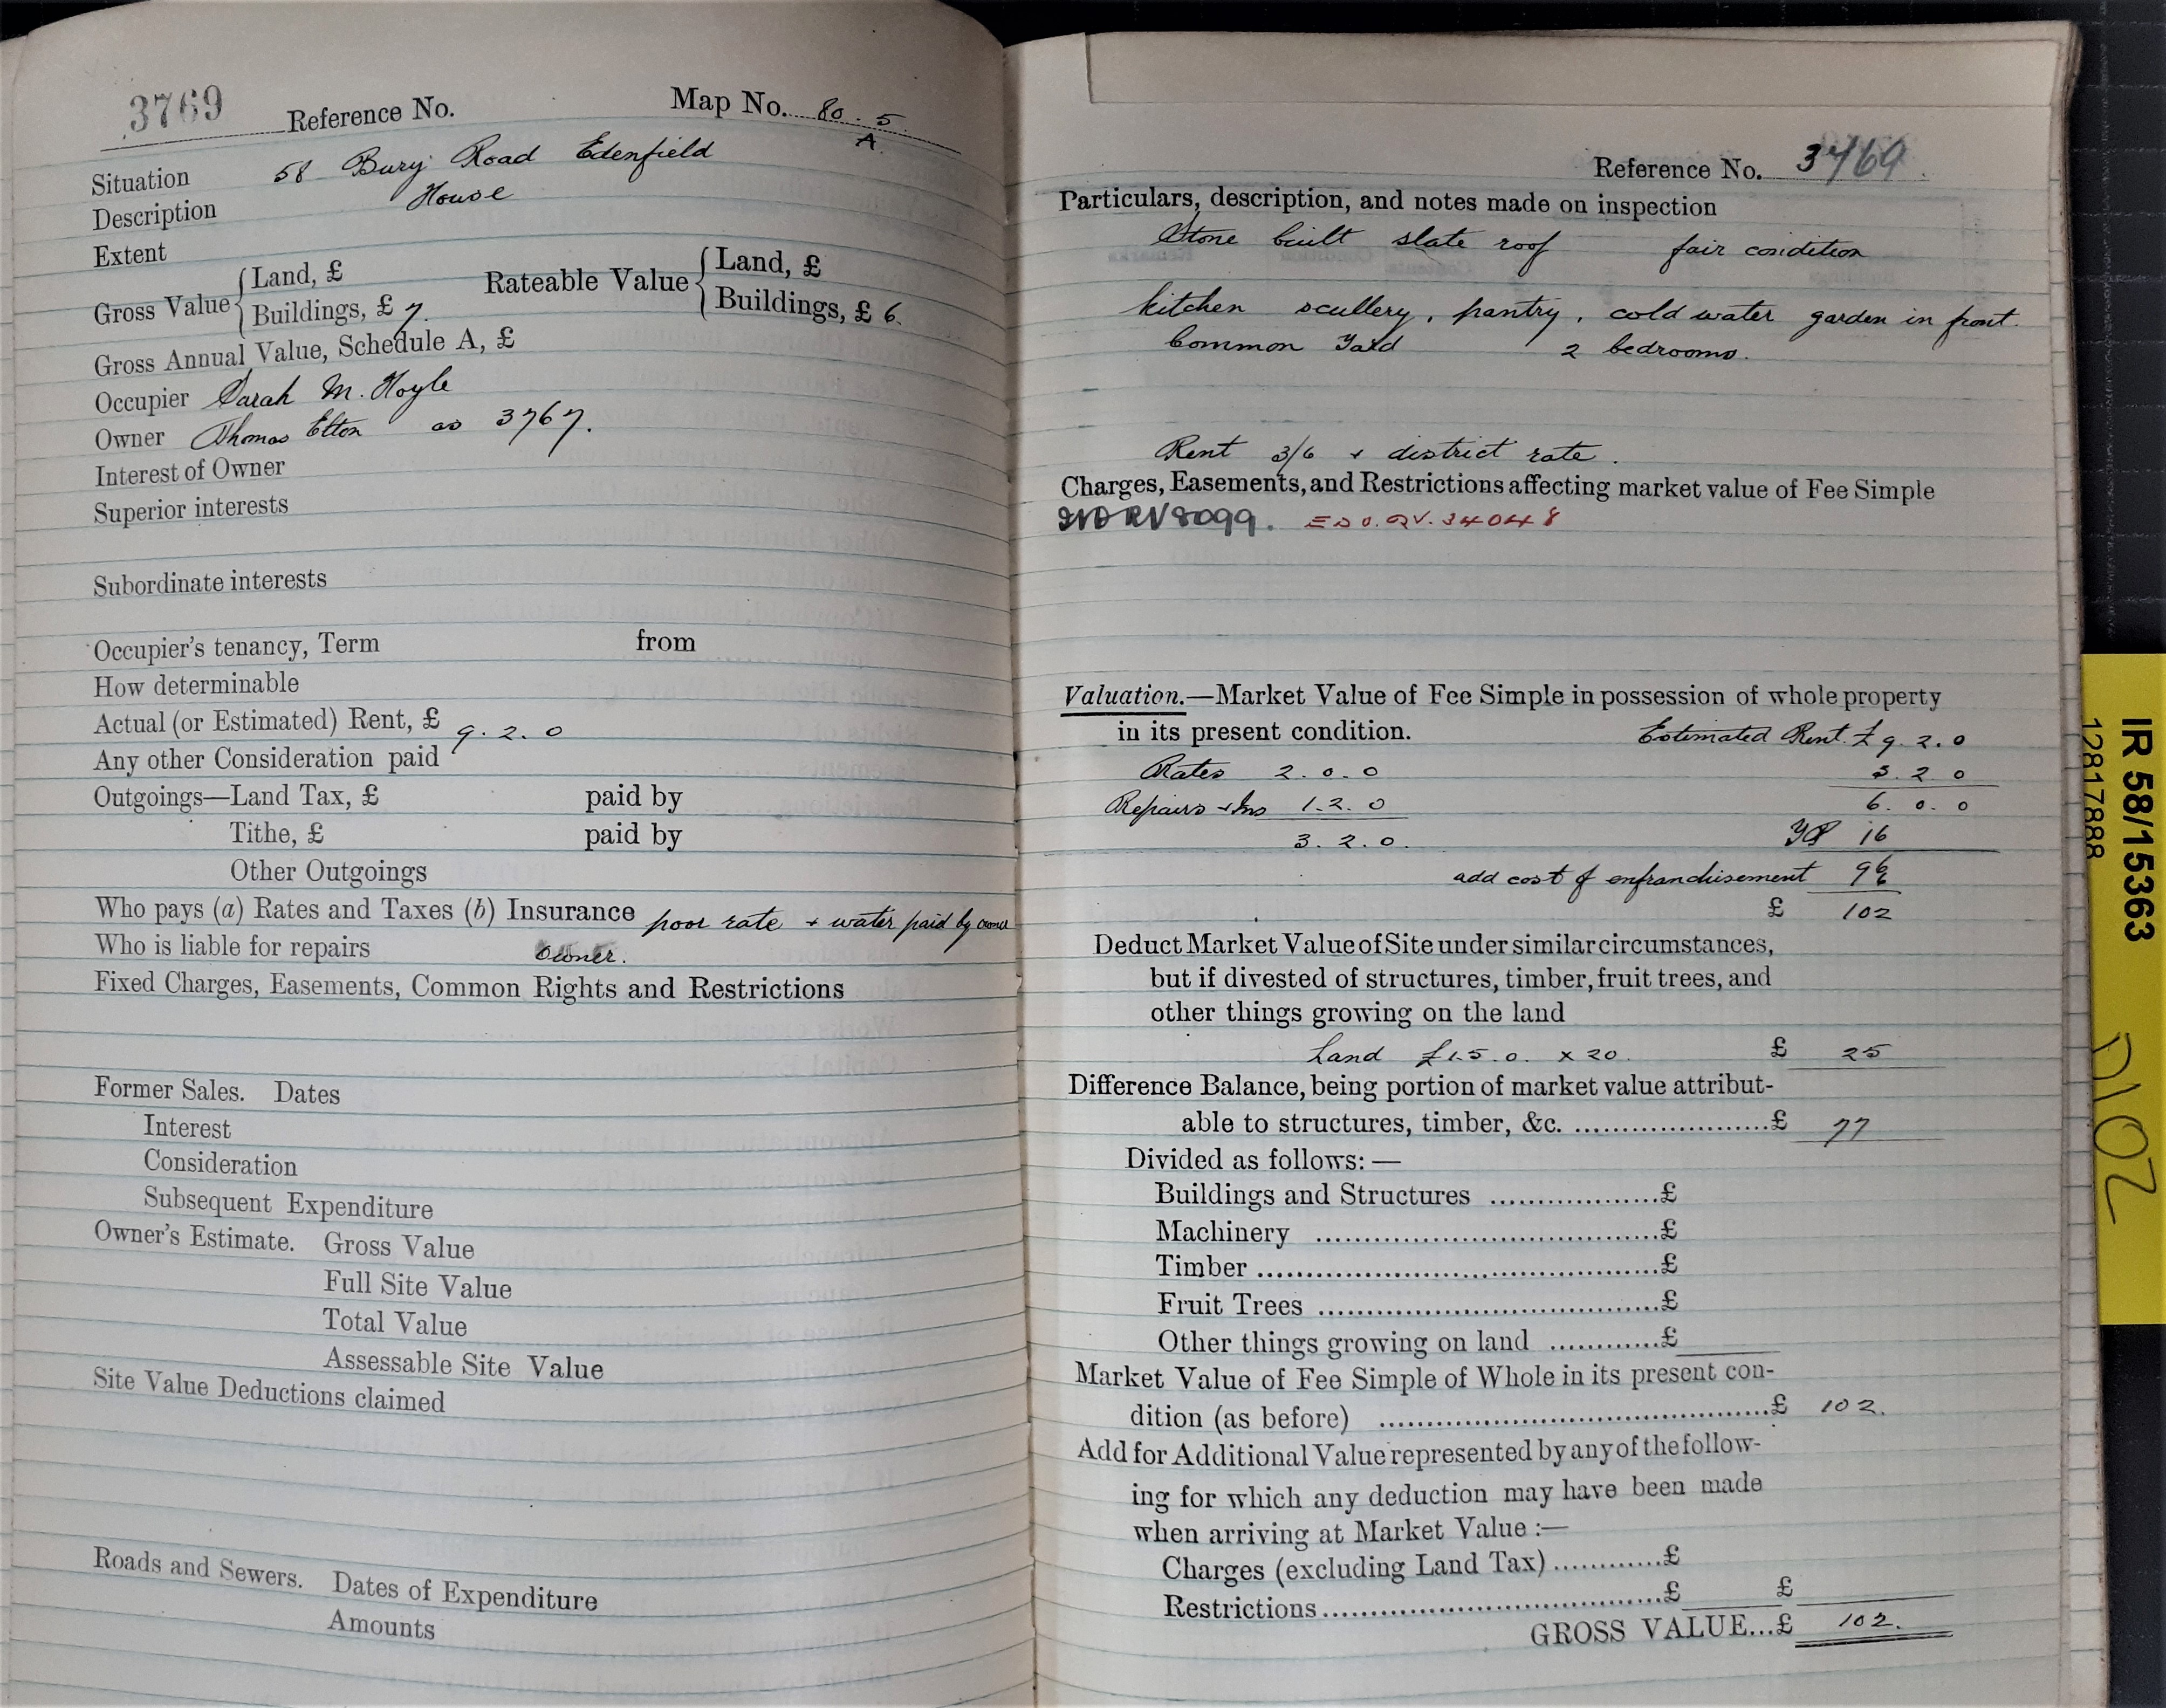 3769 Reference No. Map No. 80.5
A.
Situation 58 Bury Road Edenfield
Description House
Extent
Gross Value { Land, £
Buildings, £ 7.
Rateable Value { Land, £
Buildings, £ 6.
Gross Annual Value, Schedule A, £
Occupier Sarah M. Hoyle
Owner Thomas Elton as 3767.
Interest of Owner
Superior interests
Subordinate interests
Occupier's tenancy, Term from
How determinable
Actual (or Estimated) Rent, £ 9. 2. 0
Any other Consideration paid
Outgoings—Land Tax, £ paid by
Tithe, £ paid by
Other Outgoings
Who pays (a) Rates and Taxes (b) Insurance poor rate + water paid by owner
Who is liable for repairs Owner.
Fixed Charges, Easements, Common Rights and Restrictions
Former Sales. Dates
Interest
Consideration
Subsequent Expenditure
Owner's Estimate. Gross Value
Full Site Value
Total Value
Assessable Site Value
Site Value Deductions claimed
Roads and Sewers. Dates of Expenditure
Amounts
Reference No. 3769
Particulars, description, and notes made on inspection
Stone built slate roof fair condition
kitchen scullery, pantry, cold water garden in front.
Common Yard 2 bedrooms.
Rent 3/6 + district rate.
Charges, Easements, and Restrictions affecting market value of Fee Simple
RV 8099. 34048
Valuation.—Market Value of Fee Simple in possession of whole property
in its present condition. Estimated Rent £9. 2. 0
Rates 2. 0. 0 3. 2. 0
Repairs + Ins 1. 2. 0 6. 0. 0
3. 2. 0. YP 16
96
add cost of enfranchisement 6
£ 102
Deduct Market Value of Site under similar circumstances,
but if divested of structures, timber, fruit trees, and
other things growing on the land
Land £1.5.0. x 20. £ 25
Difference Balance, being portion of market value attribut-
able to structures, timber, &c. ......................£ 77
Divided as follows:—
Buildings and Structures ..................£
Machinery .....................................£
Timber ...........................................£
Fruit Trees .....................................£
Other things growing on land ............£
Market Value of Fee Simple of Whole in its present con-
dition (as before) ..........................................£ 102.
Add for Additional Value represented by any of the follow-
ing for which any deduction may have been made
when arriving at Market Value :—
Charges (excluding Land Tax) ............£
Restrictions.......................................£ £
GROSS VALUE...£ 102.
IR 58/15363
12817888